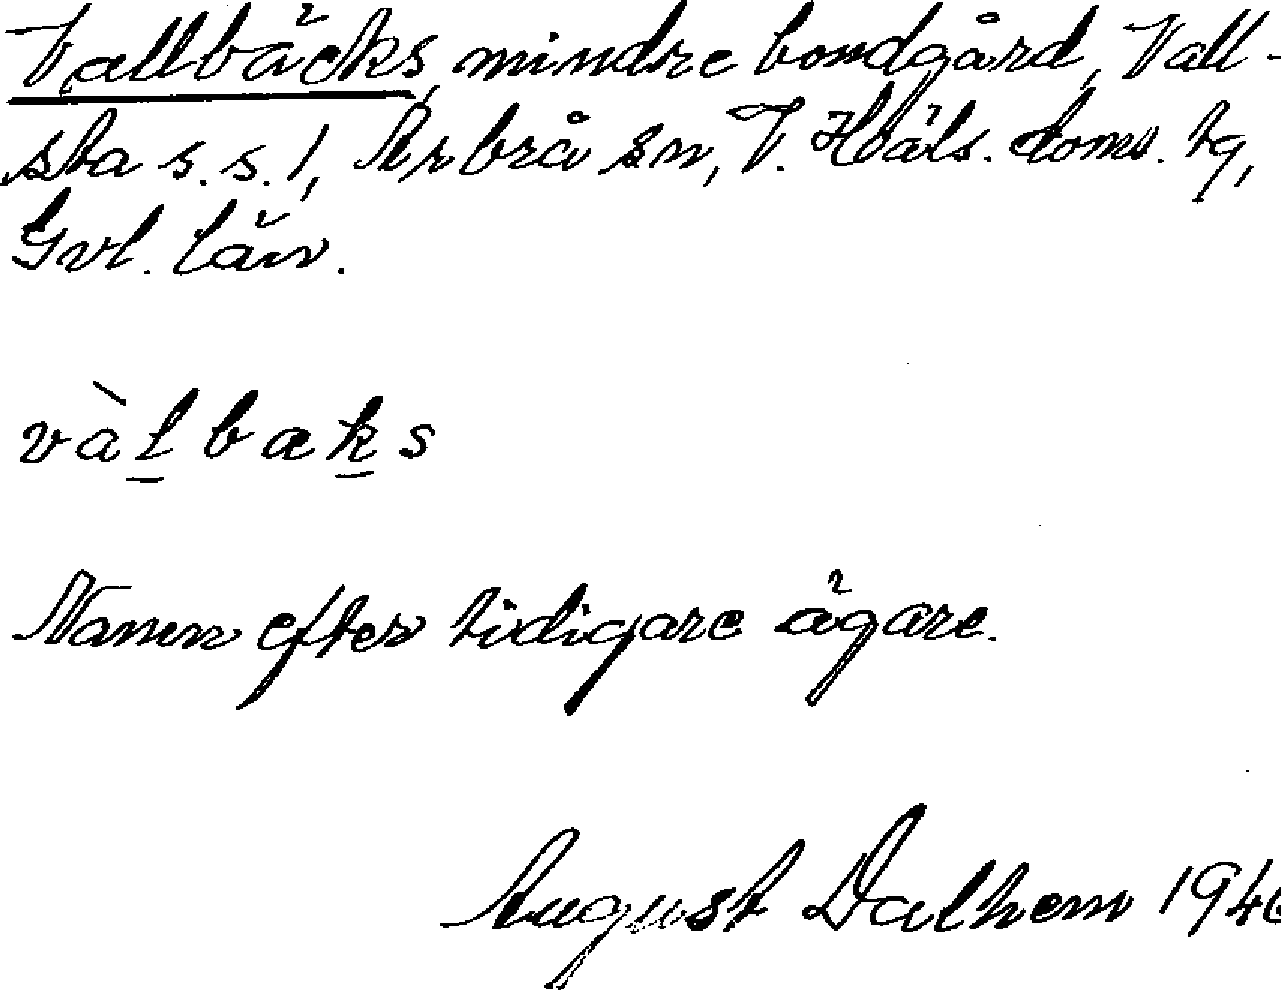 Vallbäcks, mindre bondgård, Vall-
sta s.s. 1, Arbrå sn, V. Häls. doms. tg,
Gvl. län.
vàl̲bæk̲s
Namn efter tidigare ägare.
August Dalhem 1946